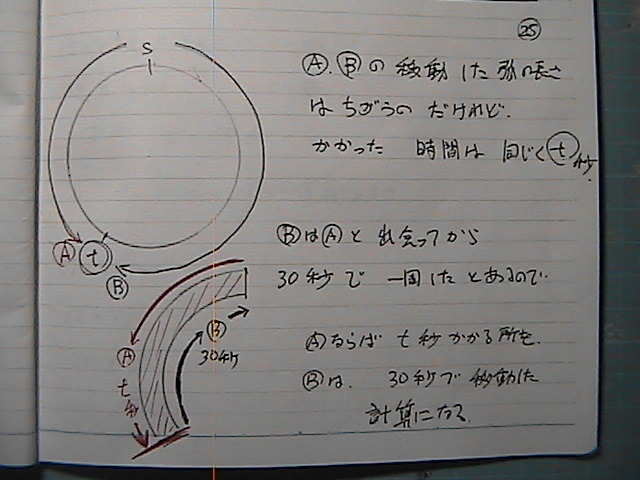 ㉕
S
Ⓐ.Ⓑの 移動した弧の長さ
はちがうの だけれど.
かかった 時間は 同じく ⓣ秒.
Ⓐ ⓣ
Ⓑ
Ⓑは Ⓐと 出会ってから
30秒で 一周したとあるので.
Ⓐならば t秒かかる所を.
Ⓑは. 30秒で 移動した
計算になる.
Ⓑ
30秒
Ⓐ
t秒